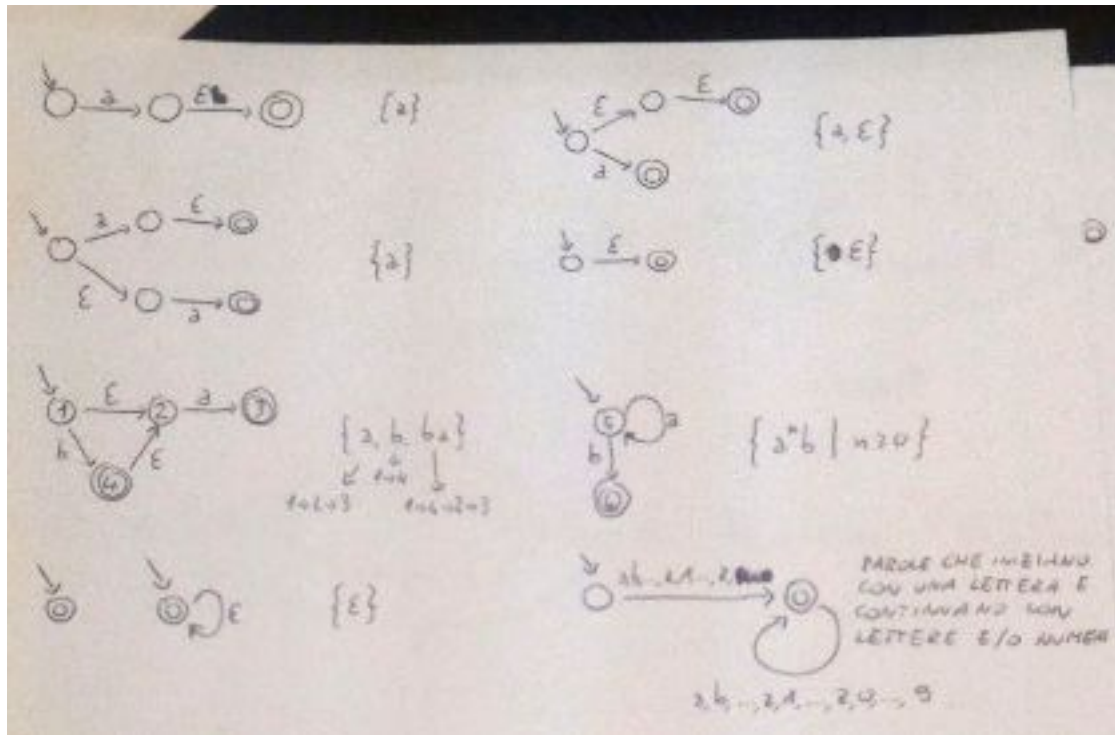 a ε {a}
ε ε a {a, ε}
a ε ε a {a}
ε {ε}
1 ε 2 a 3 b 4 ε
{a, b, ba}
1→4
1→2→3 1→4→2→3
a b {aⁿb | n≥0}
ε {ε}
PAROLE CHE INIZIANO
CON UNA LETTERA E
CONTINUANO CON
LETTERE E/O NUMERI